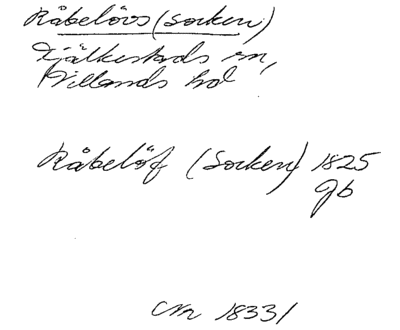 Råbelövs (socken)
Fjälkestads sn,
Villands hd
Råbelöf (Socken) 1825
Gb
CM 1833/